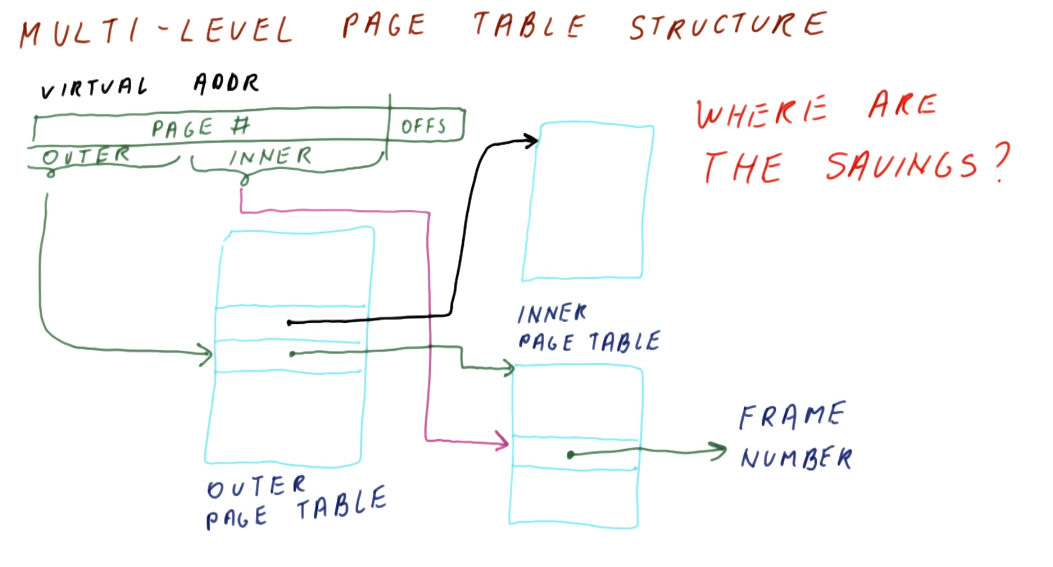 MULTI-LEVEL PAGE TABLE STRUCTURE
VIRTUAL ADDR
PAGE #
OFFS
OUTER
INNER
WHERE ARE
THE SAVINGS?
INNER
PAGE TABLE
FRAME
NUMBER
OUTER
PAGE TABLE